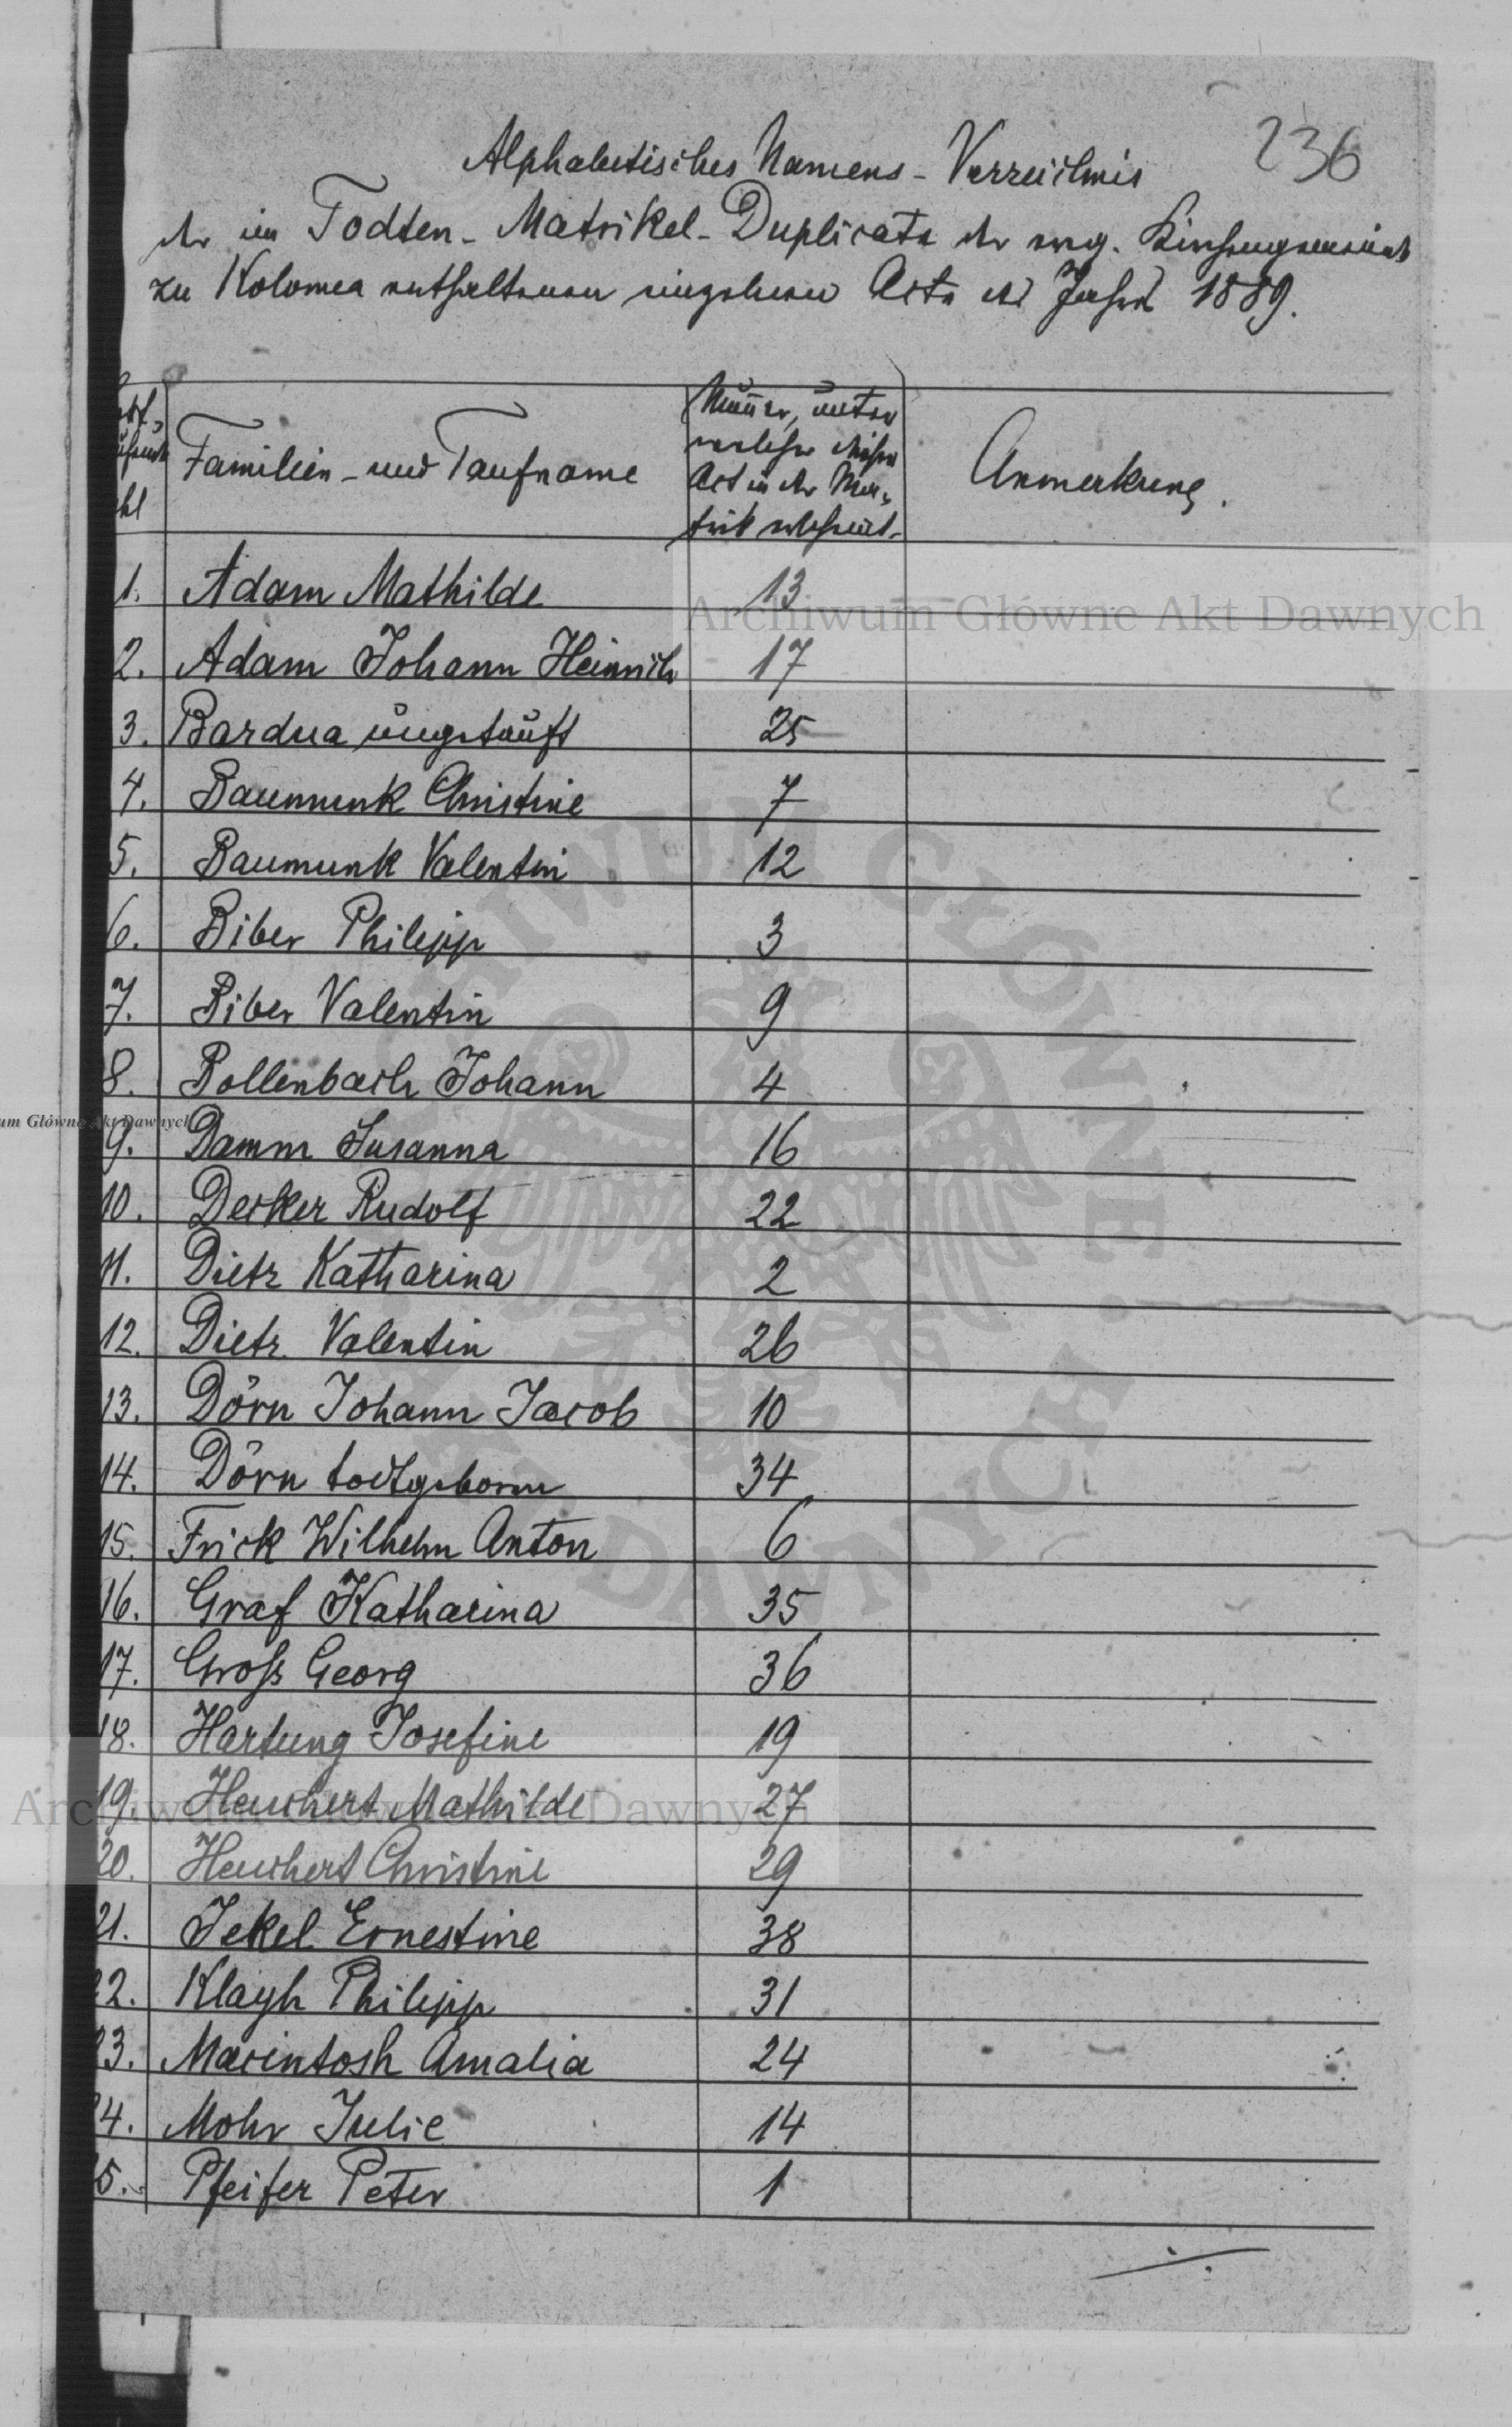 236
Alphabetisches Namens-Verzeichnis
der im Todten-Matrikel-Duplicate der evg. Kirchengemeinde
zu Kolomea enthaltenen eingetragenen Acte des Jahres 1889.
Familien- und Taufname
Numer, unter
welcher dieser
Act in der Ma-
trik erscheint.
Anmerkung.
1. Adam Mathilde 13
2. Adam Johann Heinrich 17
3. Bardua ungetauft 25
4. Baumunk Christine 7
5. Baumunk Valentin 12
6. Biber Philipp 3
7. Biber Valentin 9
8. Bollenbach Johann 4
9. Damm Susanna 16
10. Decker Rudolf 22
11. Dietz Katharina 2
12. Dietz Valentin 26
13. Dörn Johann Jacob 10
14. Dörn todtgeboren 34
15. Frick Wilhelm Anton 6
16. Graf Katharina 35
17. Groß Georg 36
18. Hartung Josefine 19
19. Heuchert Mathilde 27
20. Heuchert Christine 29
21. Jekel Ernestine 38
22. Klagh Philipp 31
23. Macintosh Amalia 24
24. Mohr Julie 14
25. Pfeifer Peter 1
./.
Archiwum Główne Akt Dawnych
um Główne Akt Dawnych
Archiwum Główne Akt Dawnych
ARCHIWUM GŁÓWNE AKT DAWNYCH